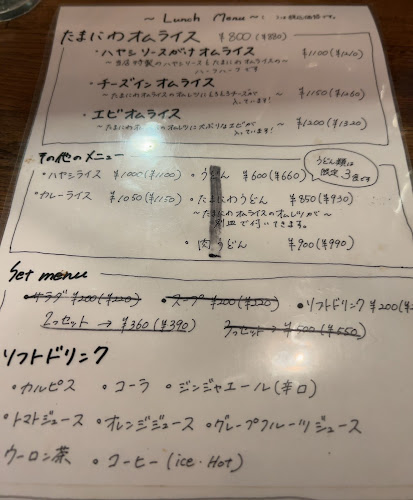 ～ Lunch Menu ～ ( )は税込価格です。
たまにわオムライス ¥800(¥880)
・ハヤシソースがけオムライス ¥1100(¥1210)
～当店特製のハヤシソースとたまにわオムライスの～
ハーフハーフです
・チーズインオムライス ～ ¥1150(¥1260)
～たまにわオムライスのオムレツにとろとろチーズが
入っています!
・エビオムライス ～ ¥1200(¥1320)
～たまにわオムライスのオムレツに大ぶりなエビが
入っています!
その他のメニュー
うどん類は
限定3食です
・ハヤシライス ¥1000(¥1100) ・うどん ¥600(¥660)
・カレーライス ¥1050(¥1150) ・たまにわうどん ¥850(¥930)
～たまにわオムライスのオムレツが～
別皿で付いてきます。
・肉うどん ¥900(¥990)
Set menu
・サラダ ¥200(¥220) ・スープ ¥200(¥220) ・ソフトドリンク ¥200(¥2
2つセット → ¥360(¥390) 3つセット → ¥500(¥550)
ソフトドリンク
・カルピス ・コーラ ・ジンジャエール(辛口)
・トマトジュース ・オレンジジュース ・グレープフルーツジュース
ウーロン茶 ・コーヒー(ice・Hot)